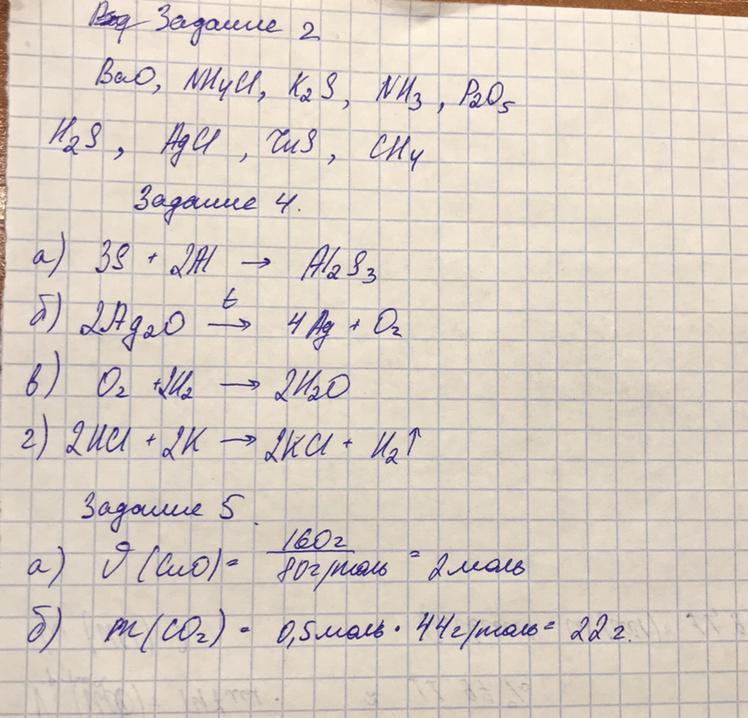 Задание 2
BaO, NH4Cl, K2S, NH3, P2O5
H2S, AgCl, ZnS, CH4
Задание 4.
а) 3S + 2Al → Al2S3
б) 2Ag2O t→ 4Ag + O2
в) O2 + 2H2 → 2H2O
г) 2HCl + 2K → 2KCl + H2↑
Задание 5.
а) ϑ(CuO) = 160г / 80г/моль = 2моль
б) m(CO2) = 0,5моль · 44г/моль = 22г.